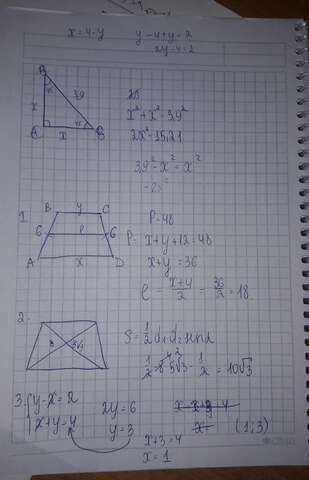 x = 4 - y
y - 4 + y = 2
2y - 4 = 2
B
45
39
x
A
x
45
C
x² + x² = 39²
2x² = 1521
39² - x² = x²
- 2x²
1.
B
y
C
6
ℓ
6
A
x
D
P = 48
P = x + y + 12 = 48
x + y = 36
ℓ = x+y/2 = 36/2 = 18
2.
8
S = 1/2 d₁ d₂ sin α
1/2 · 8 · 5√3 · 1/2 = 10√3
3. { y - x = 2
x + y = 4
2y = 6
y = 3
x + 3 = 4
x = 1
(1; 3)